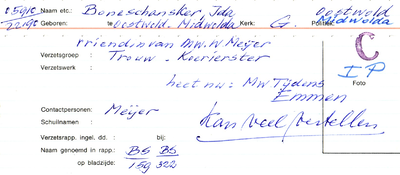 Naam etc.: Boneschansker, Ida Oostwold
Geboren: te Oostwold, Midwolda Kerk: G. Politiek: Midwolda
Vriendin van Mw. W Meijer
Verzetsgroep : Trouw - Koerierster
Verzetswerk :
C
I P
Foto
heet nu: Mw Tijdens
Emmen
Contactpersonen: Meijer
Schuilnaam :
Kan veel vertellen
Verzetsrapp. ingel. dd. : bij:
Naam genoemd in rapp.: BS BS
op bladzijde: 159 322